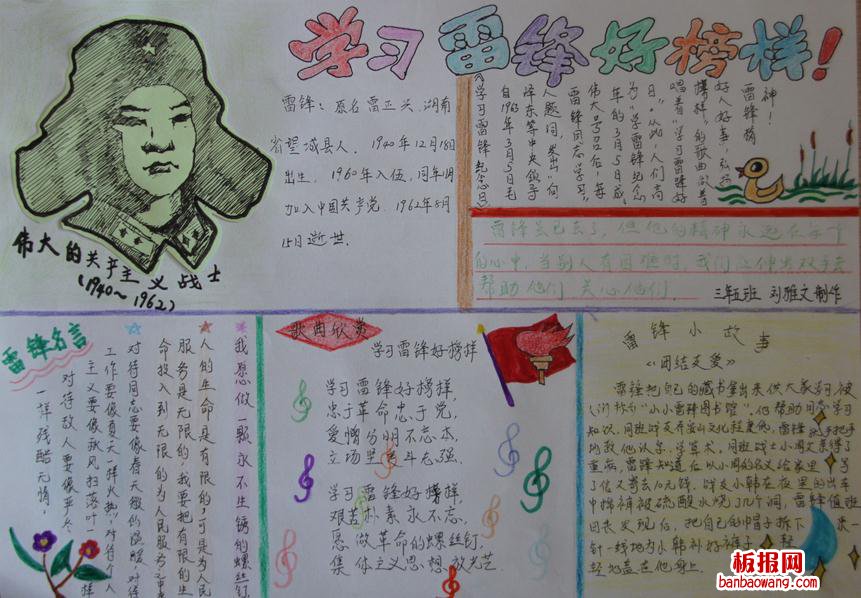 学习雷锋好榜样!
雷锋：原名雷正兴，湖南
省望城县人。1940年12月18日
出生。1960年入伍，同年11月
加入中国共产党。1962年8月
15日逝世。
伟大的共产主义战士
(1940～1962)
神！
雷锋精
好人好事，弘扬
榜样”的歌曲做着
唱着“学习雷锋好
日”。从此，人们高
为“学雷锋纪念
年的3月5日成
伟大号召后，每
雷锋同志学习”
人题词，发出“向
泽东等中央领导
自1963年3月5日毛
《学习雷锋纪念日》
雷锋虽已去了，但他的精神永远在每个
的心中，当别人有困难时，我们应伸出双手去
帮助他们，关心他们。
三年五班 刘雅文制作
雷锋名言
我愿做一颗永不生锈的螺丝钉
人的生命是有限的，可是为人民
服务是无限的，我要把有限的生
命投入到无限的为人民服务
对待同志要像春天般的温暖，对待
工作要像夏天一样火热，对待个人
主义要像秋风扫落叶一样
对待敌人要像严冬
一样残酷无情。
歌曲欣赏
学习雷锋好榜样
学习雷锋好榜样，
忠于革命忠于党，
爱憎分明不忘本，
立场坚定斗志强。
学习雷锋好榜样
艰苦朴素永不忘，
愿做革命的螺丝钉，
集体主义思想放光芒。
雷锋小故事
《团结友爱》
雷锋把自己的藏书拿出来供大家学习被
人们称为“小小雷锋图书馆”，他帮助同学学习
知识，同班战友乔安山文化程度低，雷锋就手把手
的教他认字、学算术。同班战士小周父亲得了
重病，雷锋知道后以小周的名义给家里
了信又寄去10元钱，战友小韩在夜里的出车
中棉裤被硫酸水烧了几个洞，雷锋值班
回来发现后，把自己的帽子拆下
针一线地为小韩补好裤子，
轻地盖在他身上。
板报网
banbaowang.com